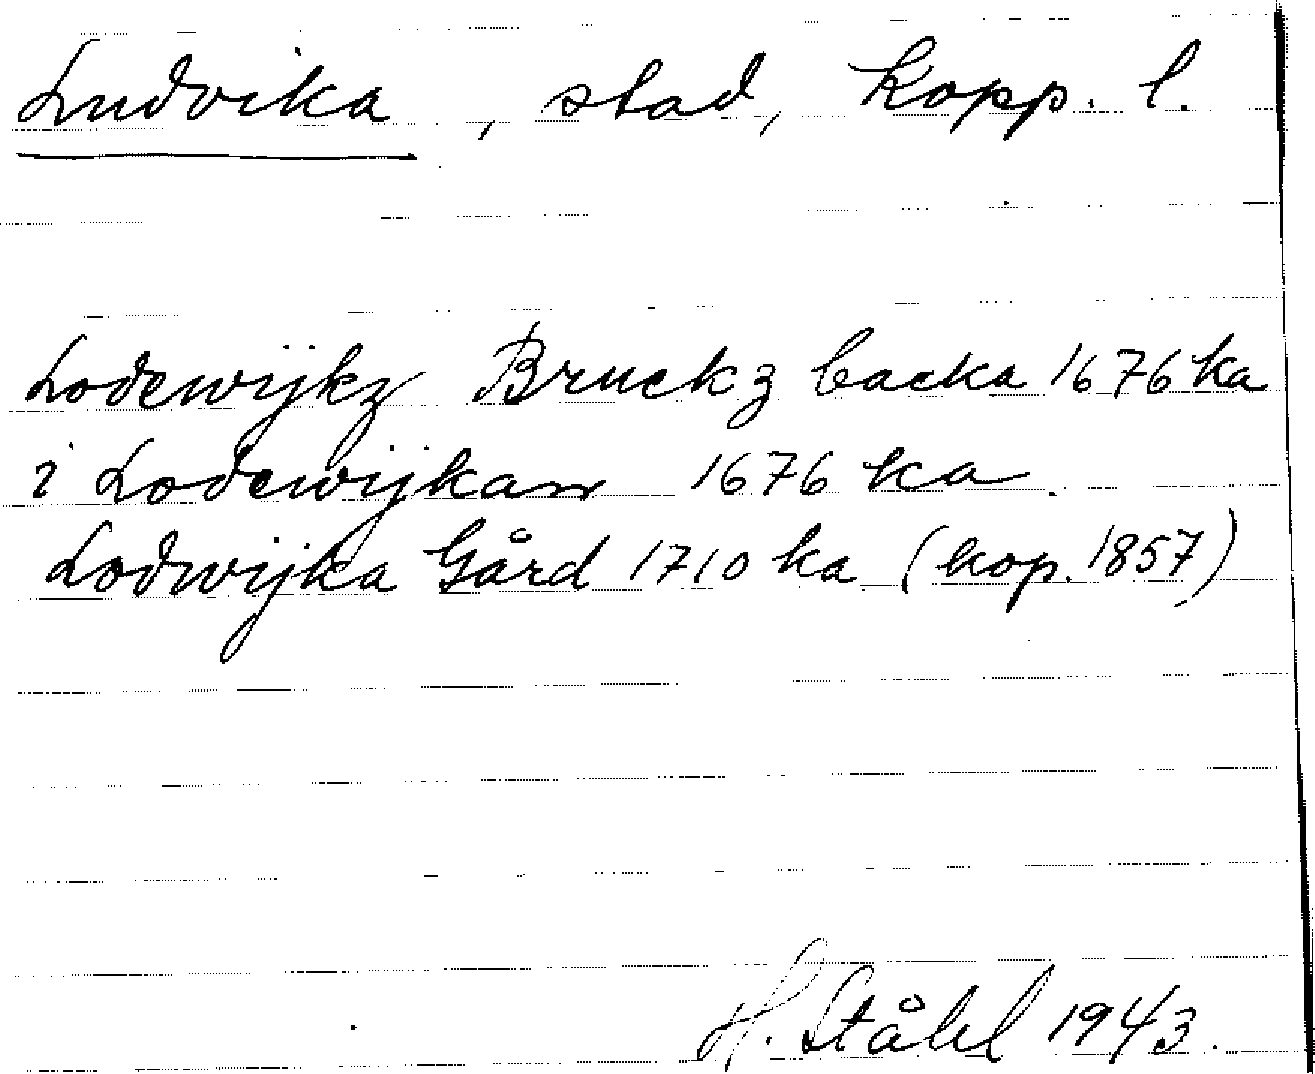 Ludvika, stad, Kopp. l.
Lodewijkz Bruckz backa 1676 ka
i Lodewijkan 1676 ka.
Lodwijka Gård 1710 ka (kop. 1857)
H. Ståhl 1943.